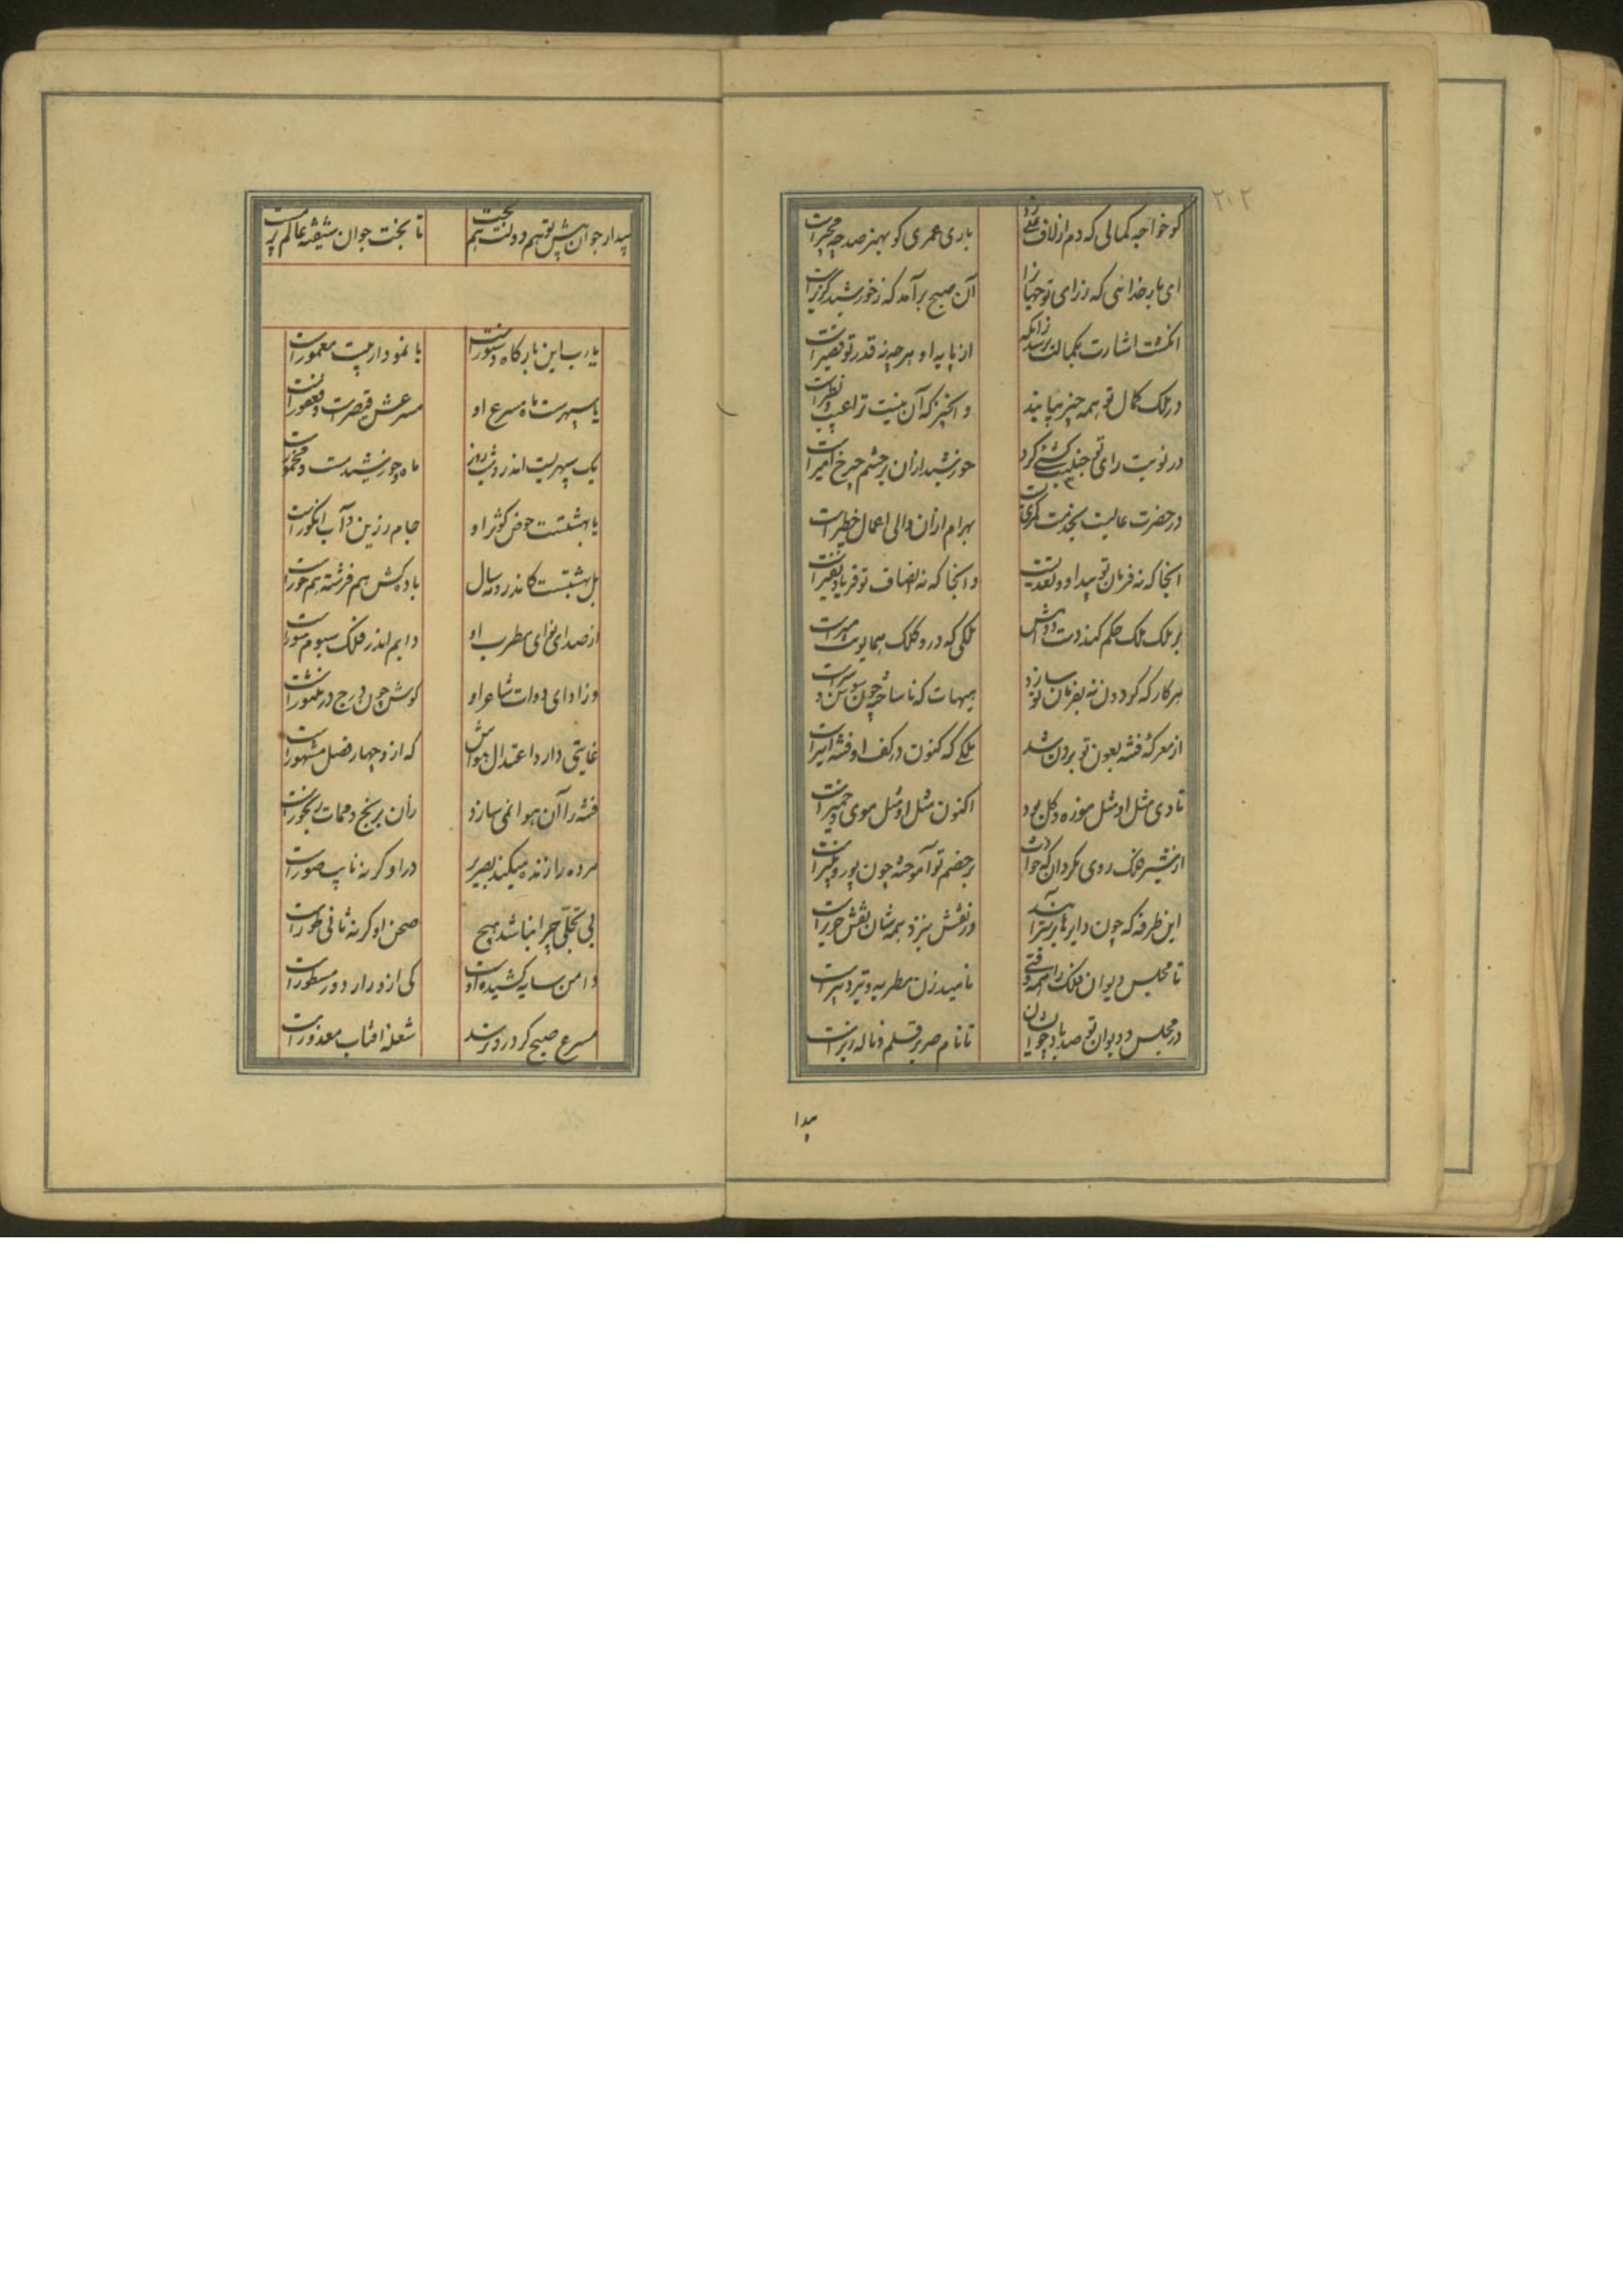 ۲۰۲
کو خواجه کمالی که دم از لاف علی زد باری عمری کو بهنر صد چو مجیرست
ای بار خدائی که ز رای تو جهانرا آن صبح برآمد که ز خورشید گزیرست
انگشت اشارت بکمالت نرسد زانکه از پایه او هرچه نه قدر تو قصیرست
در ملک کمال تو همه چیز بیابند و آنچیز که آن نیست ترا عیب و نظیرست
در نوبت رای تو جنیبت کشئی کرد خورشید ازان بر حشم چرخ امیرست
در حضرت عالیت بخدمت کمری بست بهرام ازان والی اعمال خطیرست
آنجا که نه فرمان تو بیداد و تعدیست و آنجا که نه انصاف تو فریاد و نفیرست
بر ملک ملک حکم کند دست و دلش ملکی که درو کلک همایونت مشیرست
هر کار که گردون نه بفرمان تو سازد هیهات که ناساخته چون سوسن و سیرست
از معرکه فتنه بعون تو برون شد ملکی که کنون در کف او فتنه اسیرست
تا دی مثل او مثل موزه و گل بود اکنون مثل او مثل موی و خمیرست
از شیر فلک روی مگردان که حوادث بر خصم تو آموخته چون یوز و پنیرست
این طرفه که چون دایرها بر سر آبند ور نقش پذیرد همه شان نقش حریرست
تا مجلس و دیوان فلک را همه وقتی ناهید زن مطربه و تیر دبیرست
در مجلس و دیوان تو صد باد چو ایشان تا نام صریر قلم و ناله زیرست
بیدا
بیدار جوان پیش تو هم دولت و هم بخت تا بخت جوان شیفته عالم پیرست
یارب این بارگاه دستورست یا نمودار بیت معمورست
یا سپهرست ماه مسرع او مسرعش قیصرست و فغفورست
یک سپهریست اندرو شب و روز ماه و خورشید مست و مخمور
یا بهشتست حوض کوثر او جام زرین و آب انگورست
بل بهشتست کاندرو مه و سال باده کش هم فرشته هم حورست
از صدای نوای مطرب او دایم اندر فلک سیوم سورست
وز ادای دوات شاعر او گوش چون درج در منثورست
غایتی دارد اعتدال هواش که ازو چهار فصل مشهورست
فتنه را آن هوا نمی سازد زان برنج و ممات رنجورست
مرده را زنده میکند بصریر در او گر نه نایب صورست
بی تجلی چرا نباشد هیچ صحن او گر نه ثانی طورست
دامن سایه کشیده اوست کی از در ار دور مسطورست
مسرع صبح گر درو نرسد شعله آفتاب معذورست